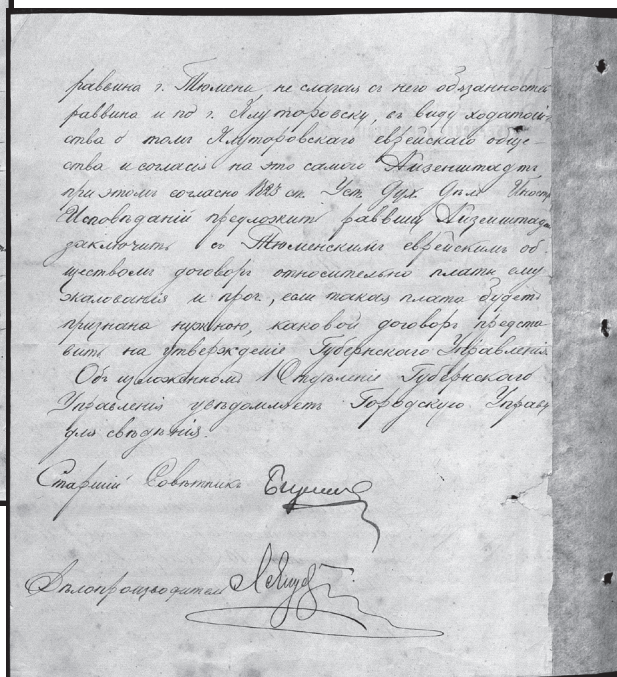 раввина г. Тюмени, не слагая съ него обязанностей
раввина и по г. Ялуторовску, въ виду ходатай-
ства о томъ Ялуторовскаго еврейскаго обще-
ства и согласія на это самого Айзенштадтъ
при этомъ согласно 1323 ст. Уст. Дух. Дѣл. Иностр.
Исповѣданій предложить раввину Айзенштадтъ
заключить съ Тюменскимъ еврейскимъ об-
ществомъ договоръ относительно платы ему
жалованія и проч., если такая плата будетъ
признана нужною, каковой договоръ предста-
вить на утвержденіе Губернскаго Управленія
Объ изложенномъ 1 Отдѣленіе Губернскаго
Управленія увѣдомляетъ Городскую Управу
для свѣдѣнія.
Старшій Совѣтникъ
Дѣлопроизводитель